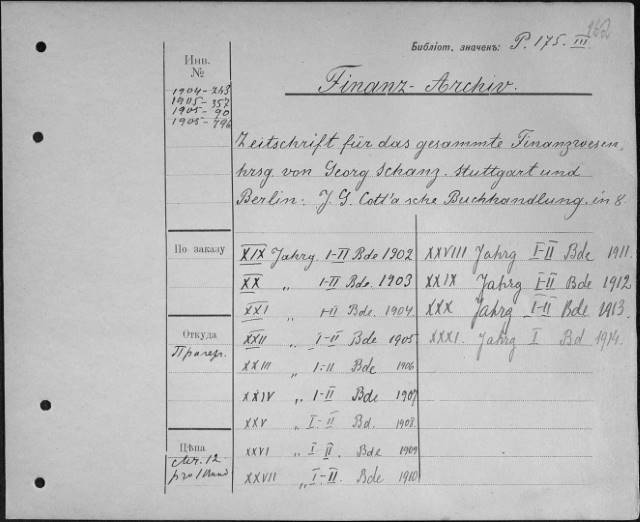 262
Библіот. значекъ: P. 175. III
Инв. №
1904-243
1905-357
1905-90
1905-796
Finanz-Archiv.
Zeitschrift für das gesammte Finanzwesen,
hrsg. von Georg Schanz. Stuttgart und
Berlin: J. G. Cotta'sche Buchhandlung. in 8.
По заказу
Откуда
Прагер.
Цѣна
Mr. 12
pro 1 Band
XIX Jahrg. I-II Bde 1902
XX „ I-II Bde. 1903
XXI „ I-II Bde. 1904
XXII „ I-II Bde 1905
XXIII „ I-II Bde 1906
XXIV „ I-II Bde 1907
XXV „ I-II Bd. 1908
XXVI „ I II Bde 1909
XXVII „ I-II Bde 1910
XXVIII Jahrg I-II Bde 1911.
XXIX Jahrg I-II Bde 1912
XXX Jahrg I-II Bde 1913.
XXXI. Jahrg I Bd 1914.